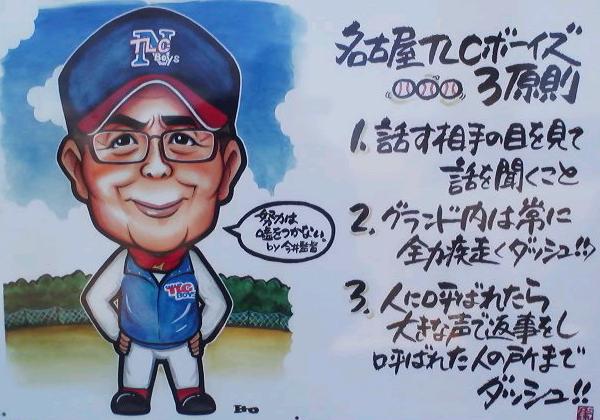 N
TLC
Boys
名古屋TLCボーイズ
3原則
1.話す相手の目を見て
話を聞くこと
2.グランド内は常に
全力疾走(ダッシュ!!)
3.人に呼ばれたら
大きな声で返事をし
呼ばれた人の所まで
ダッシュ!!
努力は
嘘をつかない。
by 今井監督
TLC
BOYS
Bo